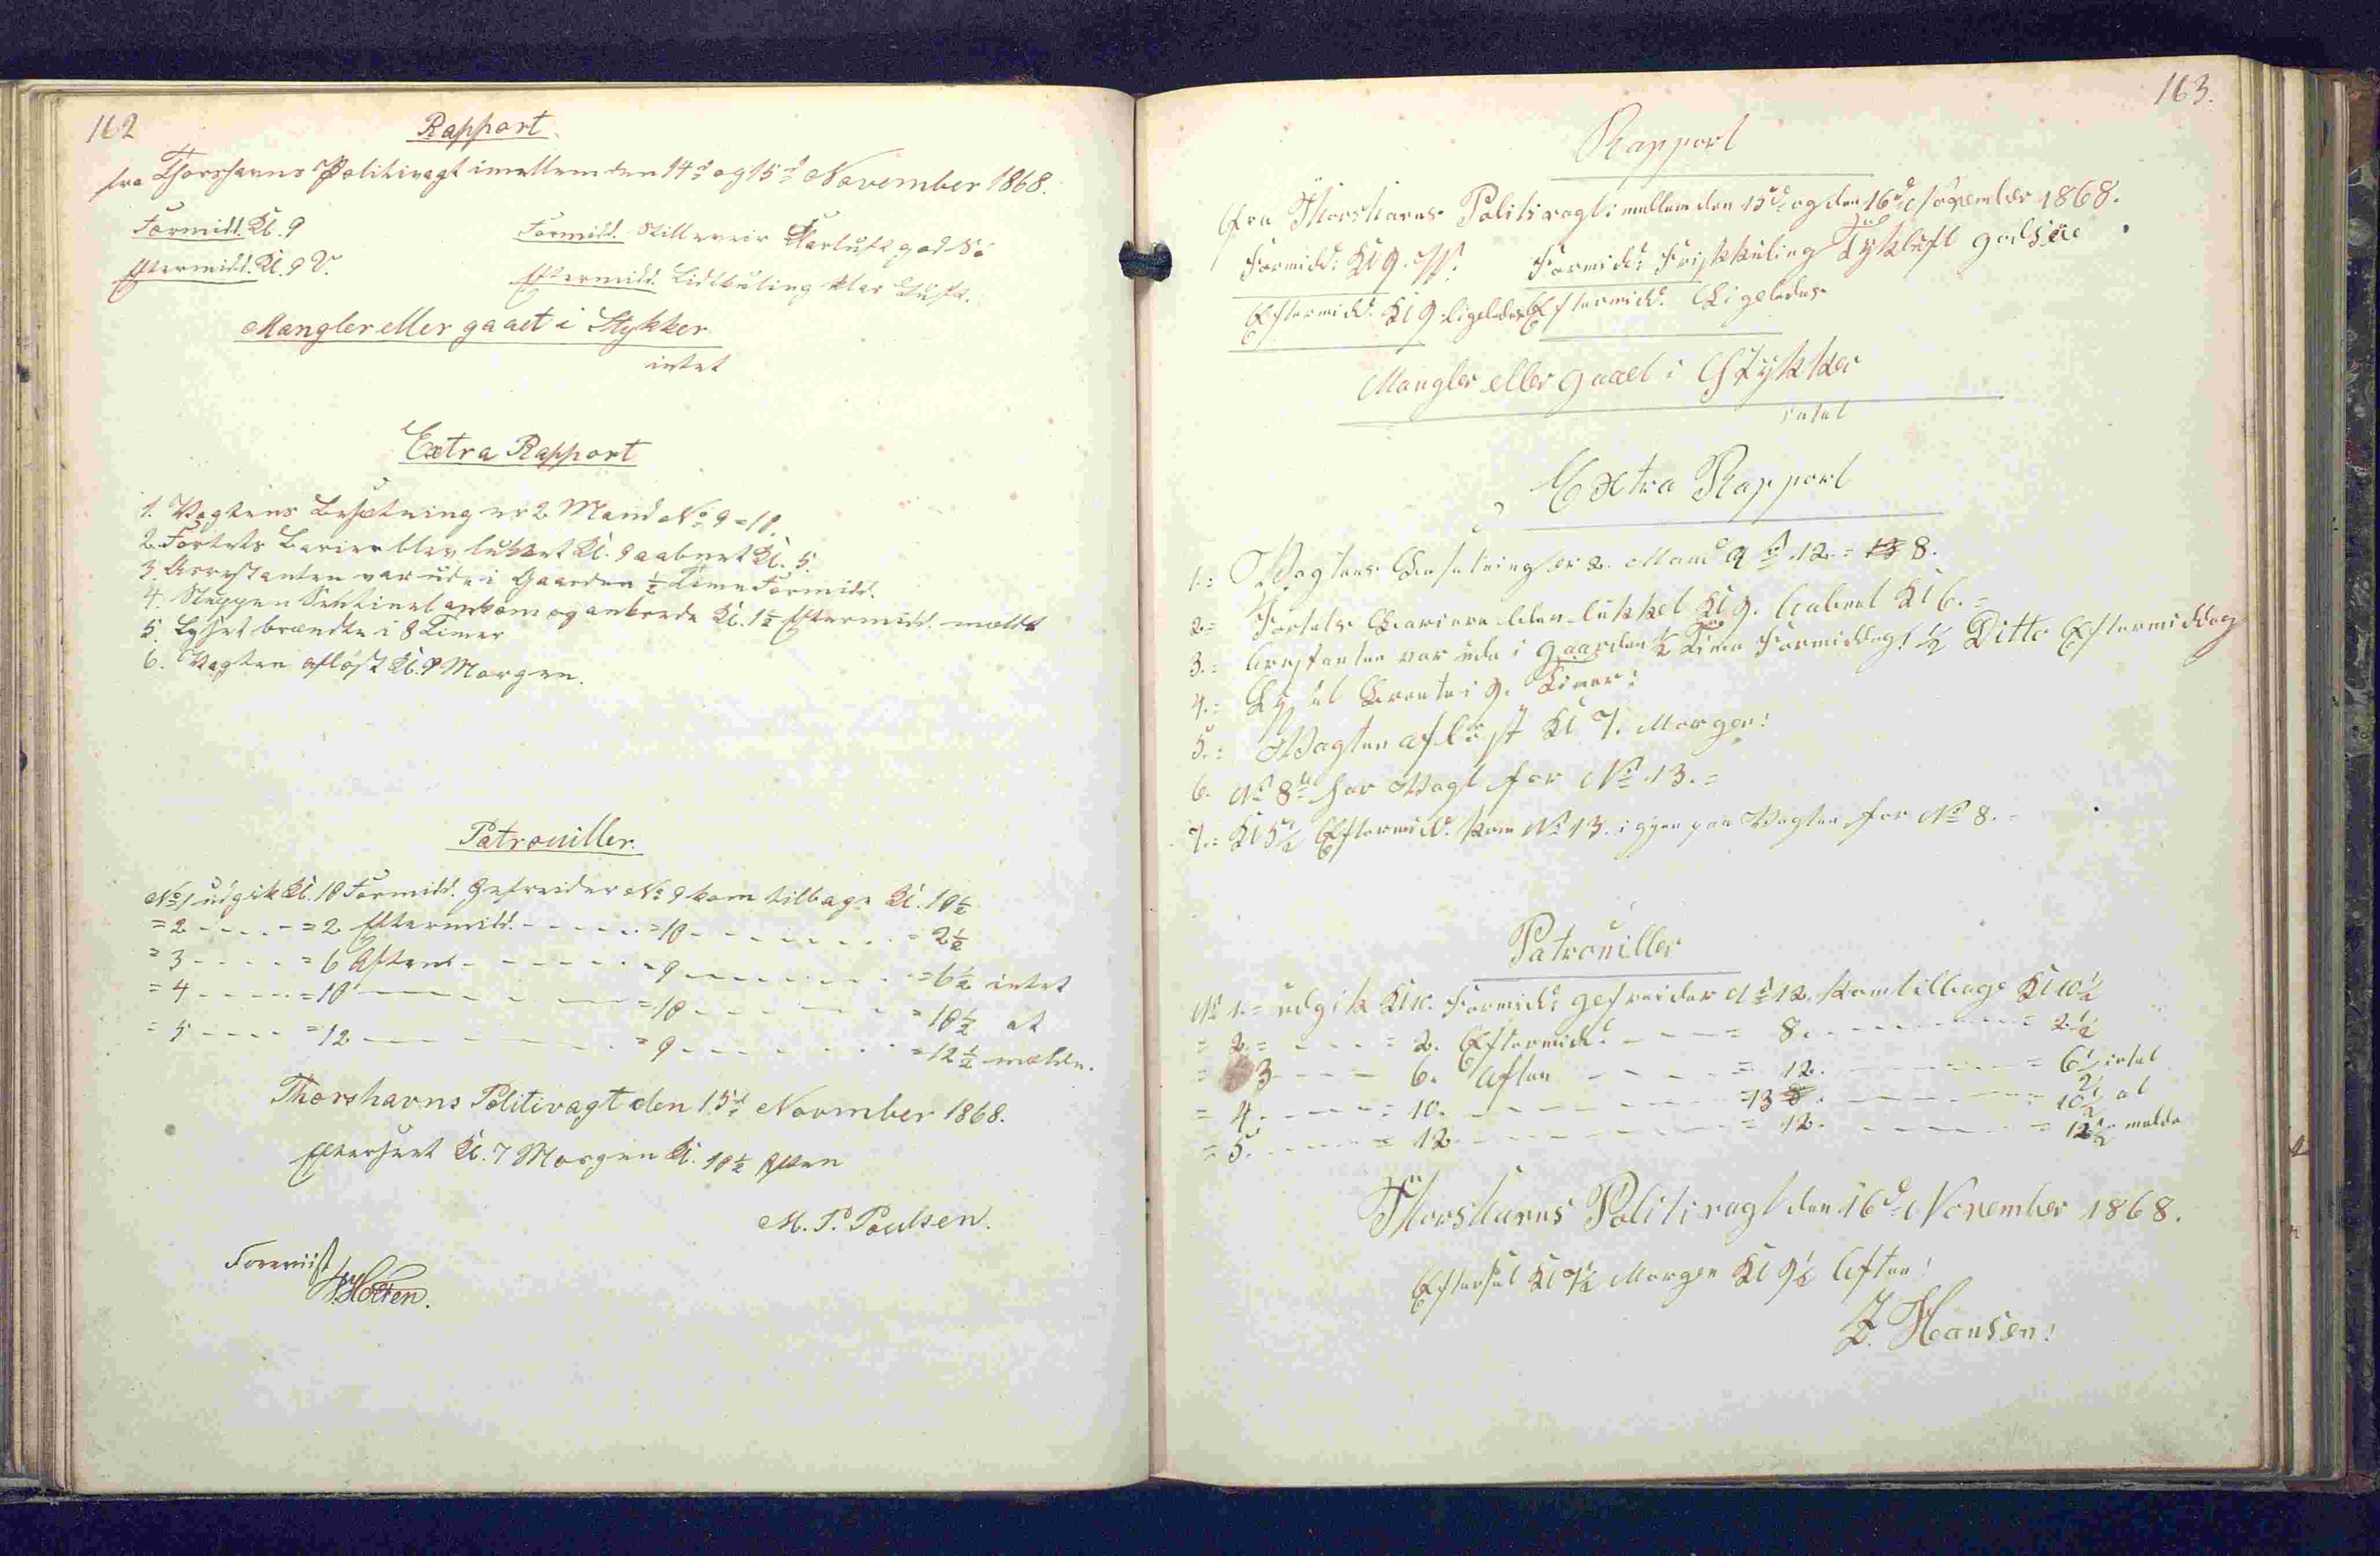 162
Rapport
fra Thorshavns Politivagt imellem den 14d og 15d November 1868.
Formidd. Kl. 9
Formidd. Stilleveir Klarluft god Sö
Eftermidd. Kl. 9 V.
Eftermidd. Lidtkuling klar Luft.
Mangler eller gaaet i Stykker
intet
Extra Rapport
1. Vagtens Besætning er 2 Mand No 9 = 10.
2. Fortets Barier blev lukket Kl. 9 aabnet Kl. 5.
3. Arrestanten var ude i Gaarden ½ Time Formidd.
4. Skeppen Sentinel ankom og ankrede Kl. 1½ Eftermidd. meldt
5. Lyset brændte i 8 Timer
6. Vagten aflöst Kl. 9 Morgen.
Patrouiller.
No 1 udgik Kl. 10 Formidd. Gefreider No 9 kom tilbage Kl. 10½
= 2 - - - - = 2 Eftermidd. - - - - = 10 - - - - - - = 2½
= 3 - - - - = 6 Aften - - - - = 9 - - - - - - = 6½ intet
= 4 - - - - = 10 - - - - - = 10 - - - - - - = 10½ at
= 5 - - - - = 12 - - - - - = 9 - - - - - - = 12½ melde.
Thorshavns Politivagt den 15d November 1868.
Efterseet Kl. 7 Morgen Kl. 10½ Aften
M. P. Poulsen.
Foreviist
Holten.
163.
Rapport
fra Thorshavns Politivagt imellem den 15d og den 16d November 1868.
Formidd: Kl 9. Formidd: Friskkuling Tykluft god Söe
Eftermidd. Kl 9 ligeledes Eftermidd. Ligeledes
Mangler eller gaaet i Stykker
intet
Extra Rapport
1.= Vagtens Besetning er 2. Mand No 12. = 13 8.
2= Fortets Bariere blev lukket Kl 9. Aabnet Kl 6. =
3.= Arestanten var ude i Gaarden ½ Time Formiddag! ½ Ditto Eftermiddag
4.= Lyset Brente i 9. Timer:
5.= Vagten aflöst Kl 7. Morgen!
6. No 8 har Vagt for No 13. =
7.= Kl 5½ Eftermidd. kom No 13. igjen paa Vagten for No 8. =
Patrouiller
No 1. = udgik Kl 10. Formidd: gefreider No 12. kom tilbage Kl 10½
= 2. = - - - = 2. Eftermidd. - - = 8. - - - - - = 2½
= 3 - - - - 6. Aften - - - - = 12. - - - - - = 6½ intet
= 4. - - - - = 10. - - - - - = 13 8. - - - - - = 10½ at
= 5. - - - - = 12. - - - - - = 12. - - - - - = 12½ melde
Thorshavns Politivagt den 16d November 1868.
Efterset Kl 7½ Morgen Kl 9½ Aften!
Z. Hansen!